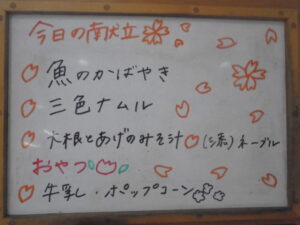 今日の献立
魚のかばやき
三色ナムル
大根とあげのみそ汁 ネーブル
おやつ
牛乳・ポップコーン